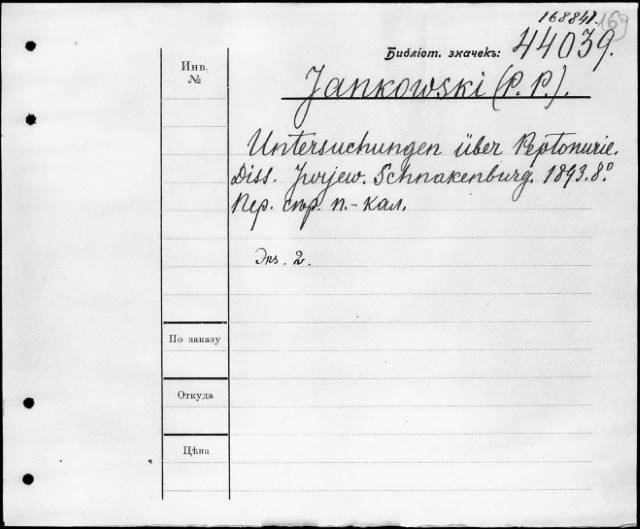 168841. 169
Библіот. значекъ: 44039.
Инв. №
Jankowski (P. P.).
Untersuchungen über Peptonurie.
Diss. Jurjew. Schnakenburg. 1893. 8°.
Пер. стр. п.-кал.
Экз. 2.
По заказу
Откуда
Цѣна